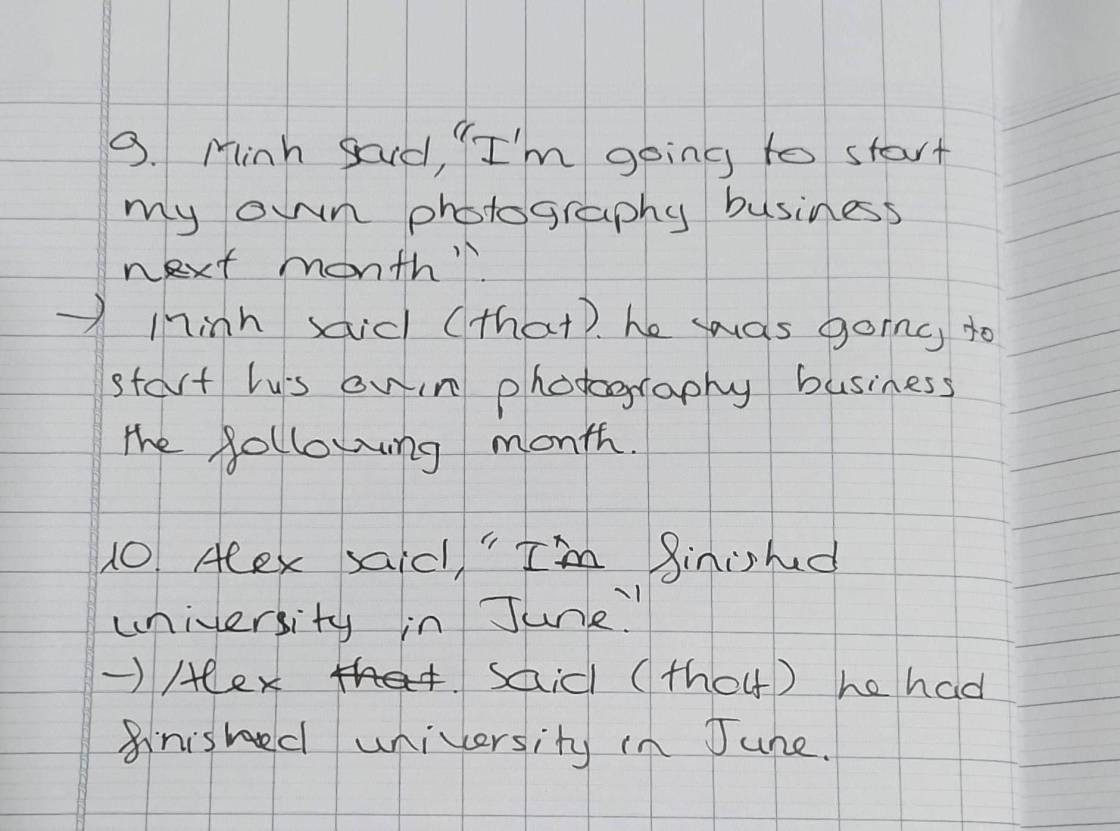 9. Minh said, "I'm going to start
my own photography business
next month".
→ Minh said (that). he was going to
start his own photography business
the following month.
10. Alex said, "I'm finished
university in June."
→ Alex that. said (that) he had
finished university in June.